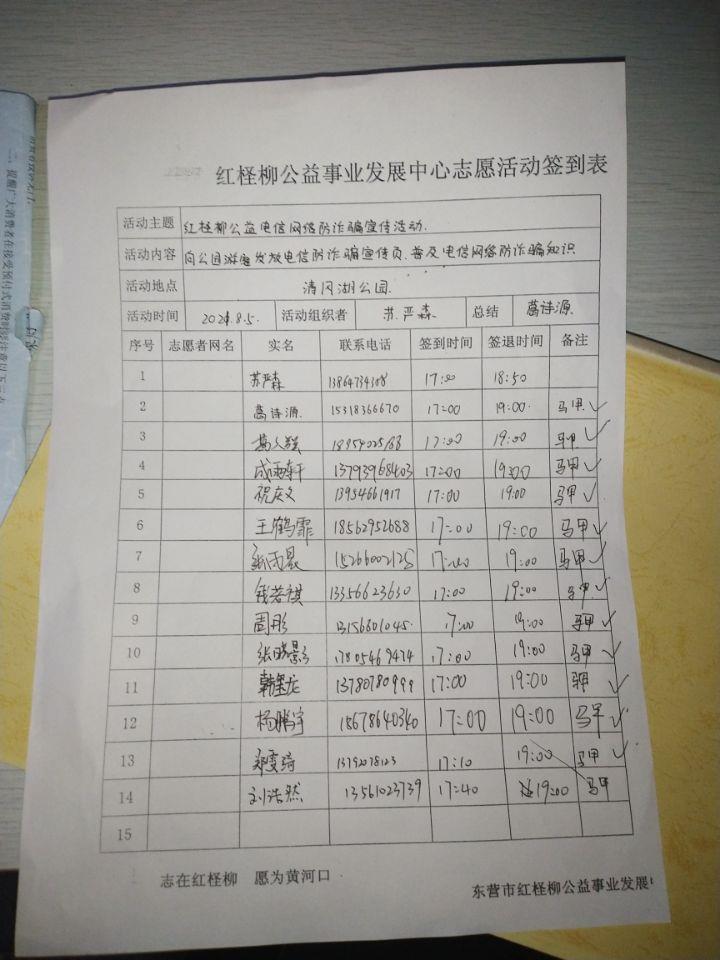 红柽柳公益事业发展中心志愿活动签到表
活动主题 红柽柳公益电信网络防诈骗宣传活动.
活动内容 向公园游客发放电信防诈骗宣传页.普及电信网络防诈骗知识
活动地点 清风湖公园.
活动时间 2021.8.5. 活动组织者 苏严森 总结 葛诗源.
序号 志愿者网名 实名 联系电话 签到时间 签退时间 备注
1 苏严森 13864734308 17:00 18:50
2 葛诗源 15318366670 17:00 19:00 马甲 ✓
3 17:00 19:00 马甲 ✓
4 成雨轩 13793968403 17:00 19:00 马甲 ✓
5 祝庆文 13954661917 17:00 19:00 马甲 ✓
6 王鹤霏 18562952688 17:00 19:00 马甲 ✓
7 15266002125 17:00 19:00 马甲 ✓
8 钱若祺 13356623630 17:00 19:00 马甲 ✓
9 周彤 13156601045. 17:00 19:00 马甲 ✓
10 17805469474 17:00 19:00 马甲 ✓
11 13780780999 17:00 19:00 马甲 ✓
12 杨鹏宇 18678640340 17:00 19:00 马甲 ✓
13 1392078123 17:10 19:00 马甲 ✓
14 刘浩然 13561023739 17:40 19:00 马甲
15
志在红柽柳 愿为黄河口
东营市红柽柳公益事业发展
二、提醒广大消费者在接受预付式消费时要注意以下三点